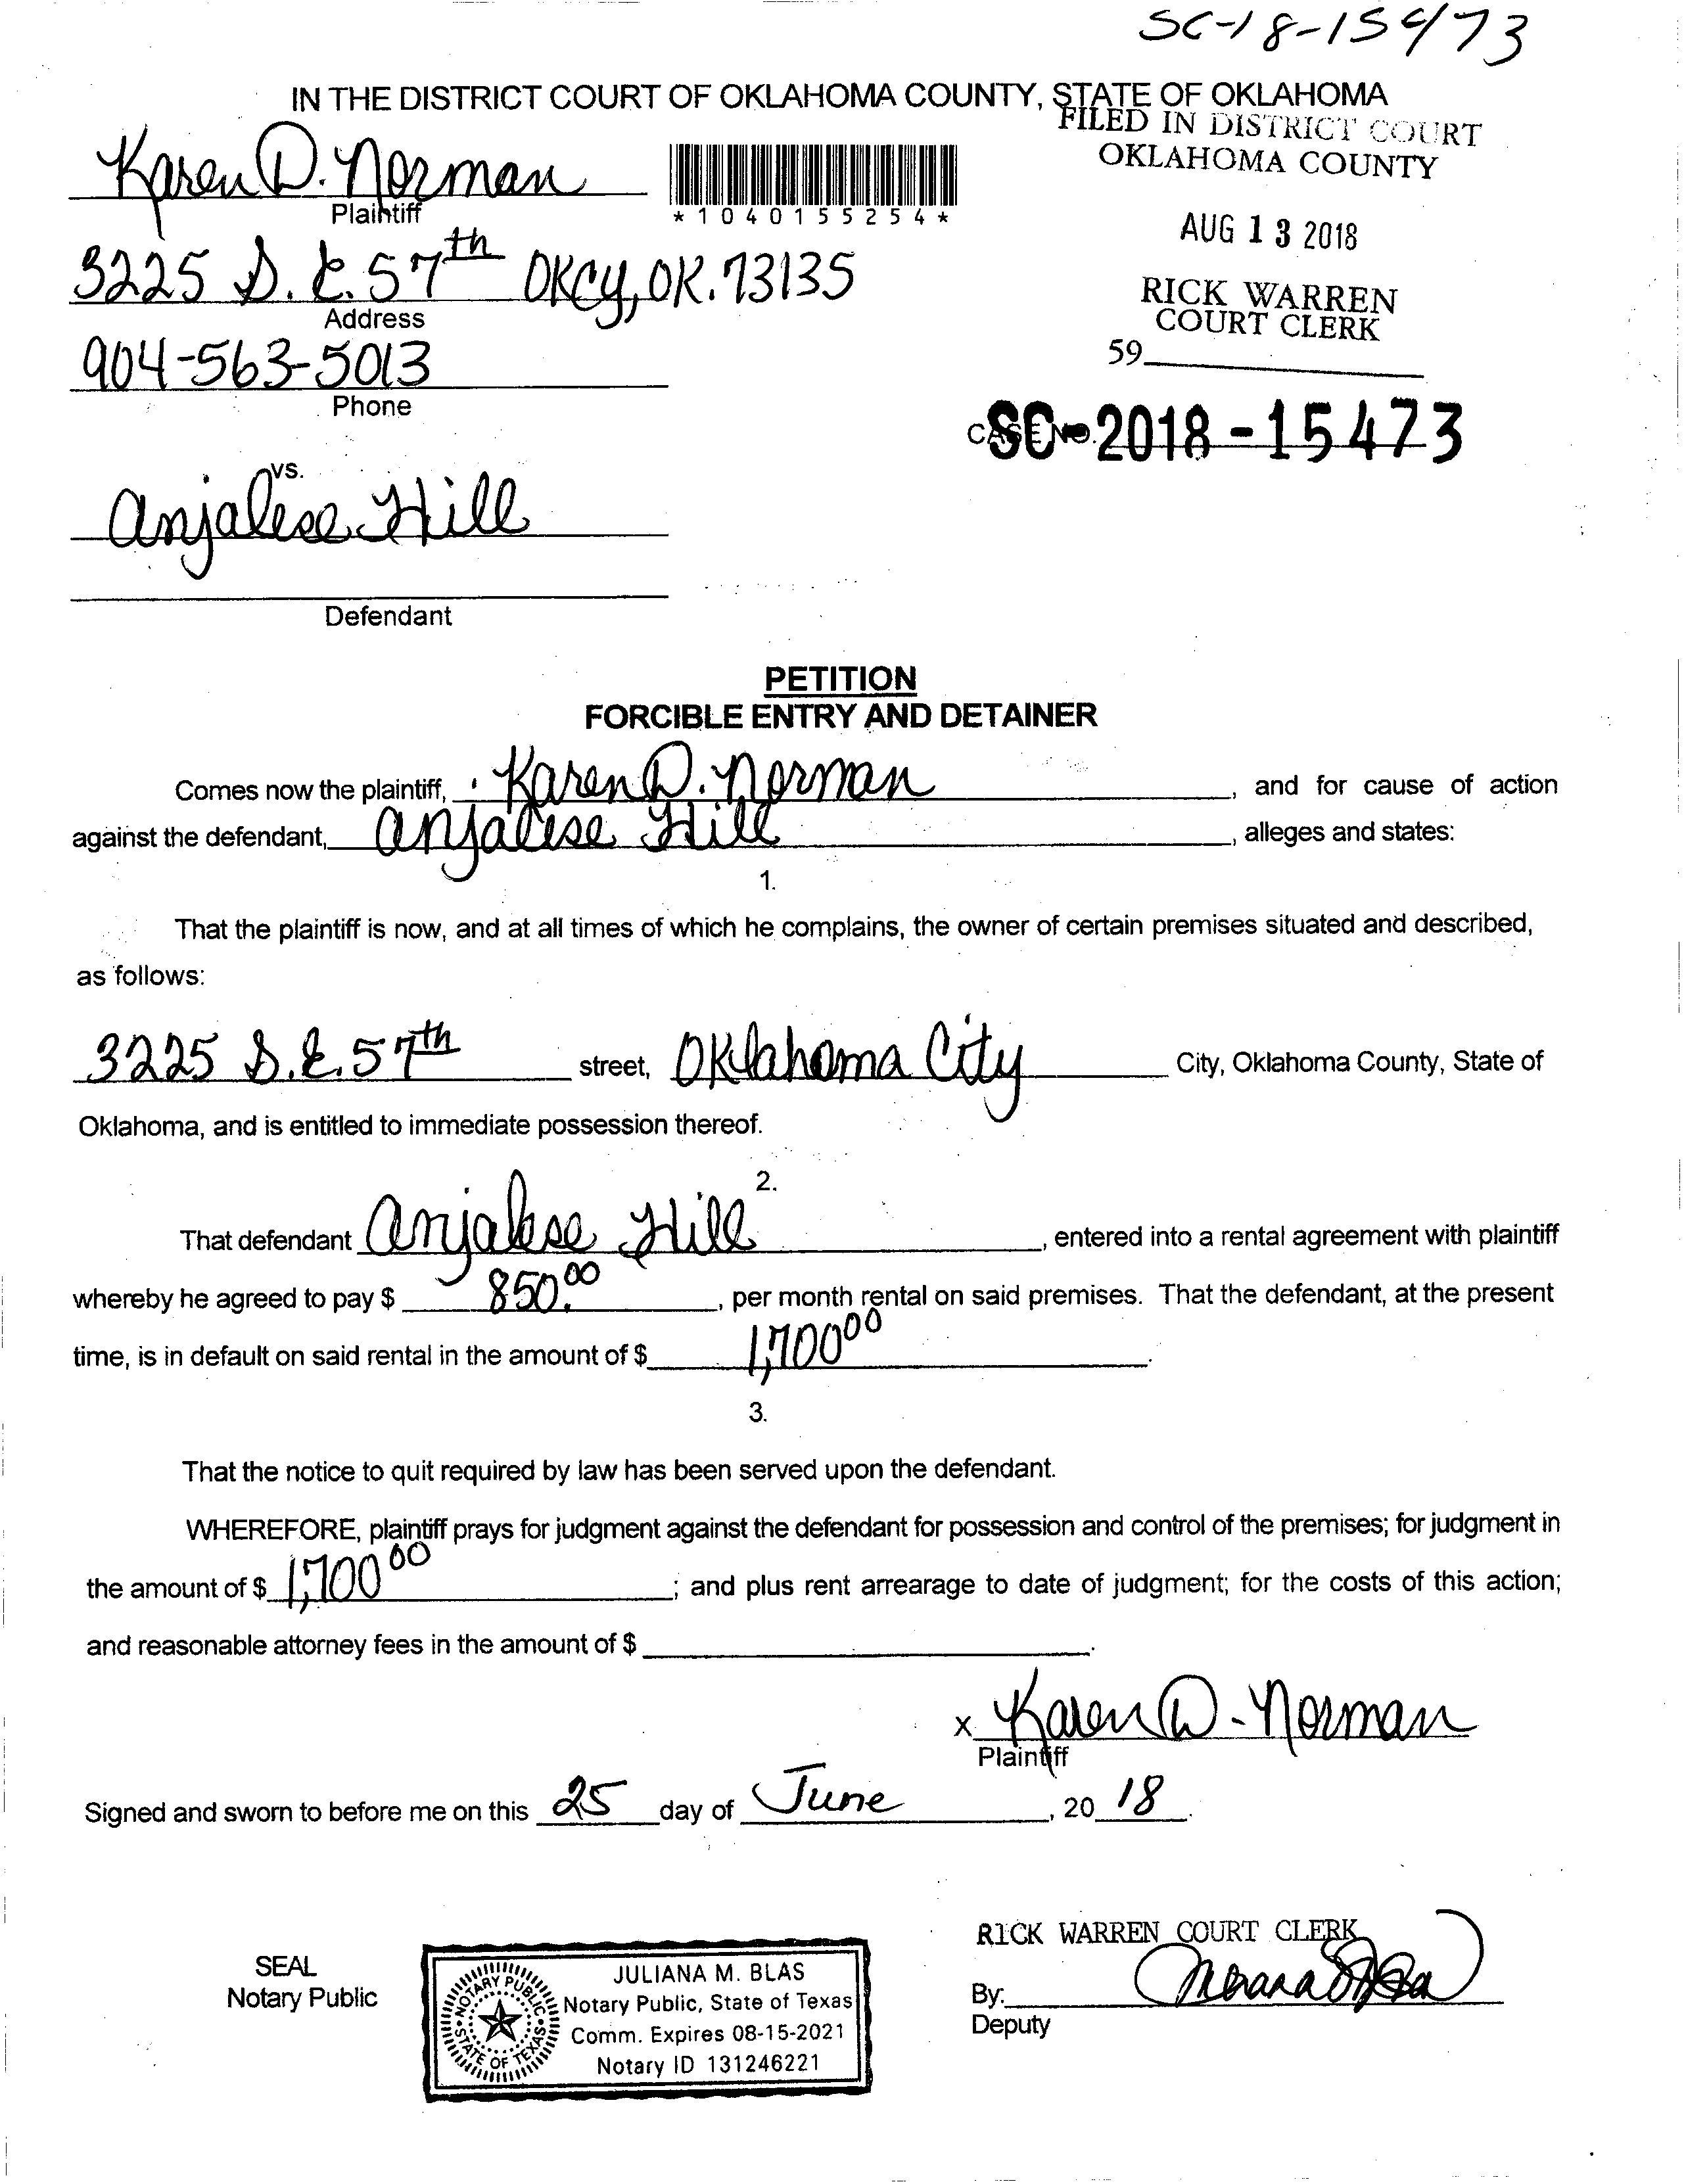 SC-18-15473
IN THE DISTRICT COURT OF OKLAHOMA COUNTY, STATE OF OKLAHOMA
FILED IN DISTRICT COURT
OKLAHOMA COUNTY
Karen D. Norman
Plaintiff
*1040155254*
AUG 13 2018
3225 S.E. 57th OKCy, OK. 73135
Address
RICK WARREN
COURT CLERK
59
904-563-5013
Phone
CASE NO. SC-2018-15473
vs.
Anjalese Hill
Defendant
PETITION
FORCIBLE ENTRY AND DETAINER
Comes now the plaintiff, Karen D. Norman, and for cause of action
against the defendant, Anjalese Hill, alleges and states:
1.
That the plaintiff is now, and at all times of which he complains, the owner of certain premises situated and described,
as follows:
3225 S.E. 57th street, Oklahoma City City, Oklahoma County, State of
Oklahoma, and is entitled to immediate possession thereof.
2.
That defendant Anjalese Hill, entered into a rental agreement with plaintiff
whereby he agreed to pay $ 850.00, per month rental on said premises. That the defendant, at the present
time, is in default on said rental in the amount of $ 1,700 00.
3.
That the notice to quit required by law has been served upon the defendant.
WHEREFORE, plaintiff prays for judgment against the defendant for possession and control of the premises; for judgment in
the amount of $ 1,700 00; and plus rent arrearage to date of judgment; for the costs of this action;
and reasonable attorney fees in the amount of $ .
x Karen D. Norman
Plaintiff
Signed and sworn to before me on this 25 day of June, 20 18.
RICK WARREN COURT CLERK
SEAL
Notary Public
JULIANA M. BLAS
Notary Public, State of Texas
Comm. Expires 08-15-2021
Notary ID 131246221
NOTARY PUBLIC
STATE OF TEXAS
By:
Deputy